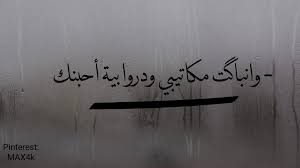 - وانباگت مكاتيبي ودروا بية أحبنك
Pinterest:
MAX4k